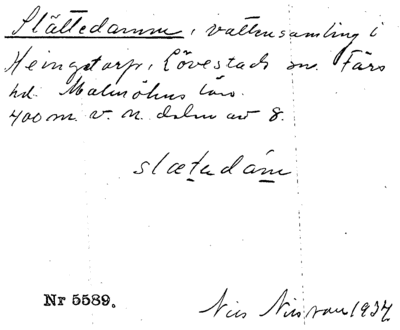 Slättedamm, vattensamling i
Heingstorp, Lövestads sn. Färs
hd. Malmöhus län.
400 m. v. n. delen av 8.
slætadám
Nr 5589.
Nils Nilsson 1934.